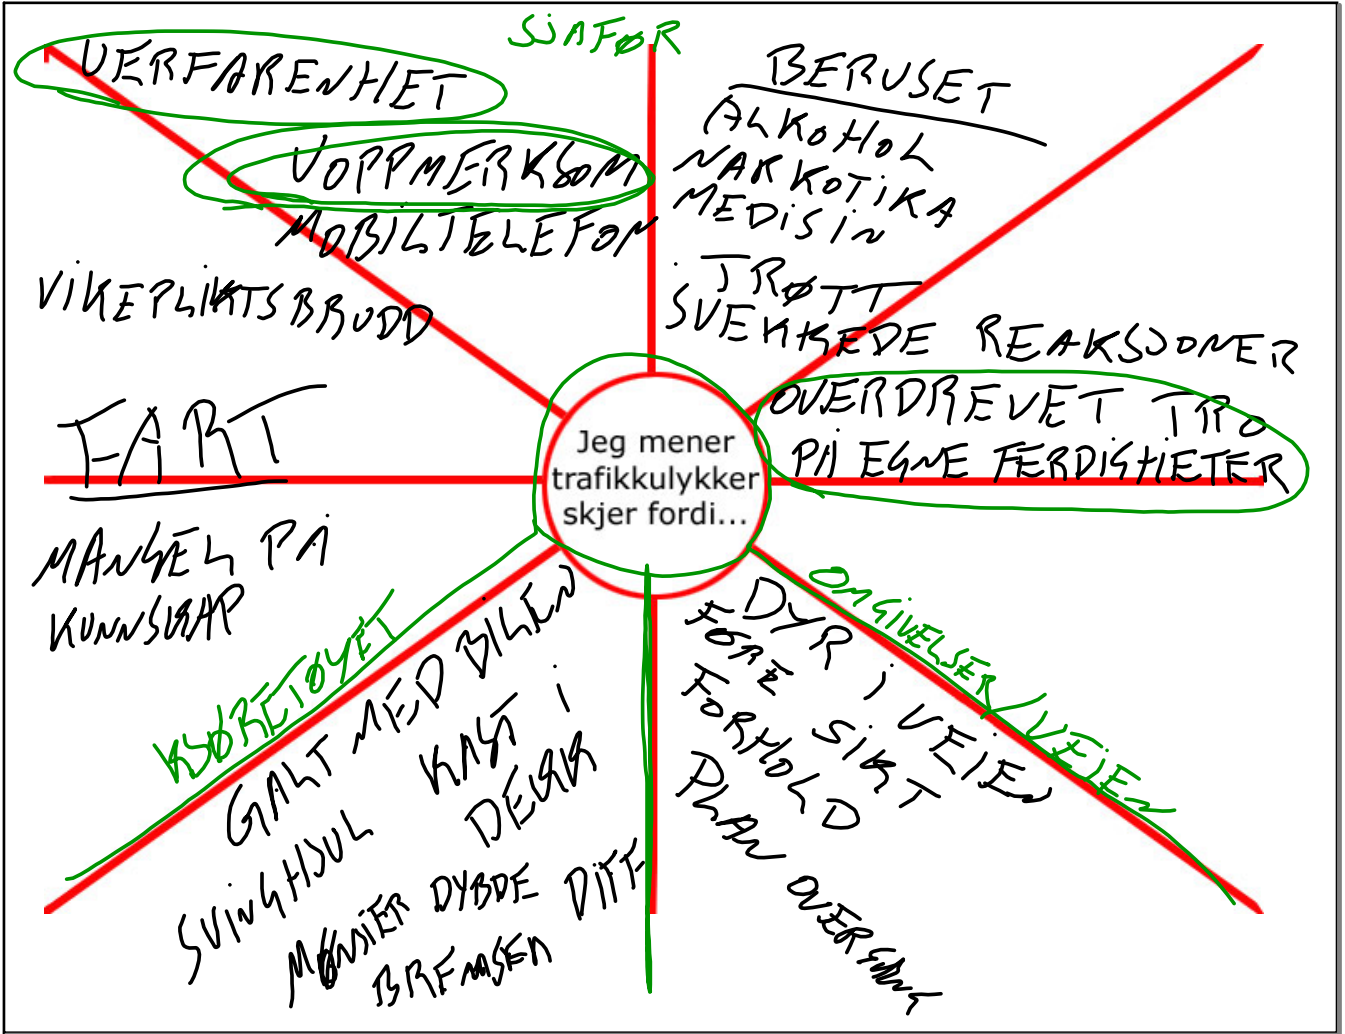 SJÅFØR
UERFARENHET
UOPPMERKSOM
MOBILTELEFON
VIKEPLIKTSBRUDD
FART
MANGEL PÅ
KUNNSKAP
BERUSET
ALKOHOL
NARKOTIKA
MEDISIN
TRØTT
SVEKKEDE REAKSJONER
OVERDREVET TRO
PÅ EGNE FERDIGHETER
Jeg mener
trafikkulykker
skjer fordi...
KJØRETØYET
GALT MED BILEN
SVINGHJUL KAST I
DEKK
MØNSTER DYBDE DIFF
BREMSEN
OMGIVELSER/VEIEN
DYR I VEIEN
FØRE SIKT
FORHOLD
PLAN OVERGANG